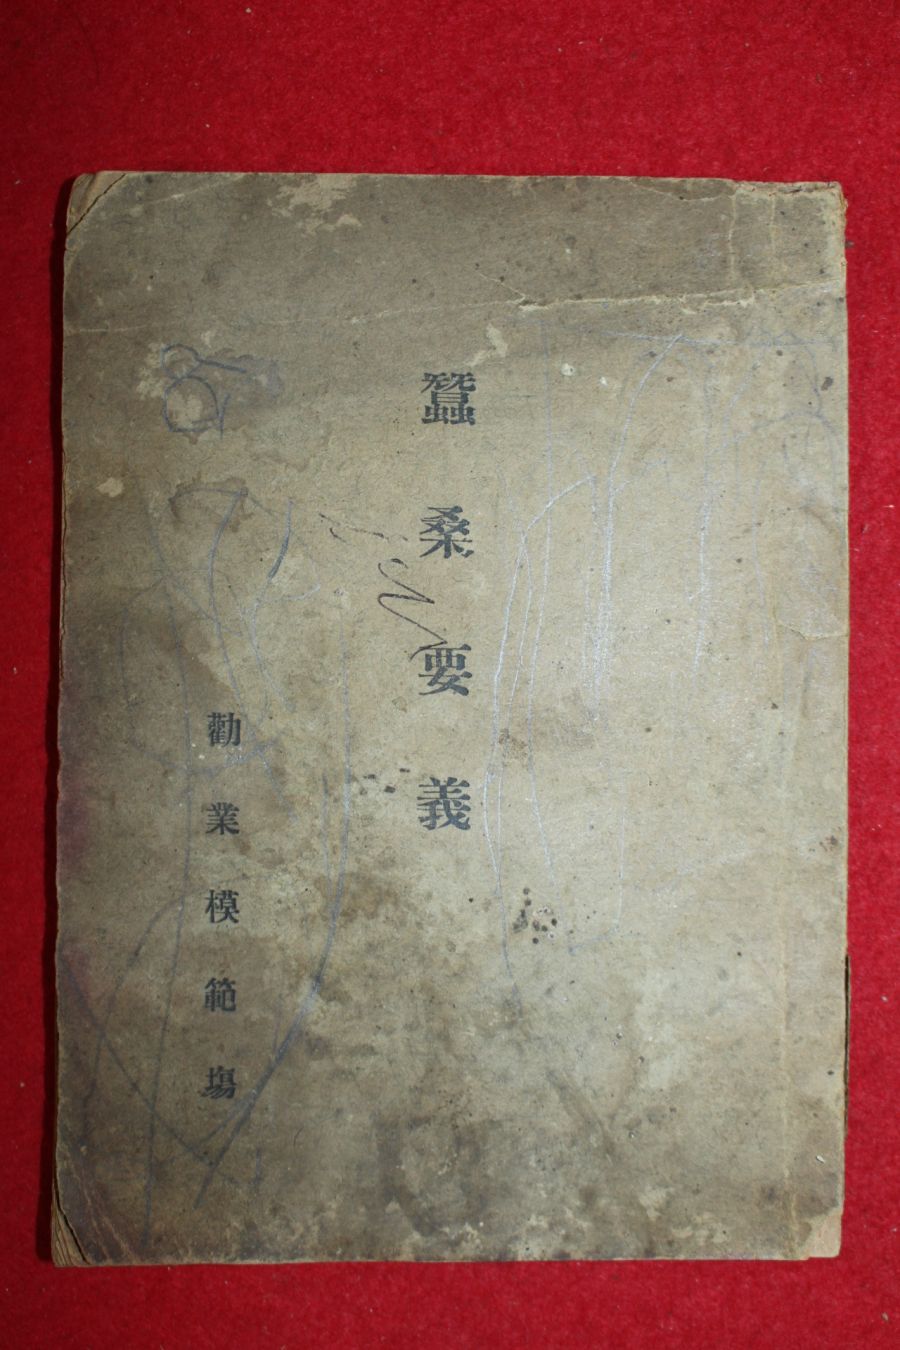 蠶桑要義
勸業模範場